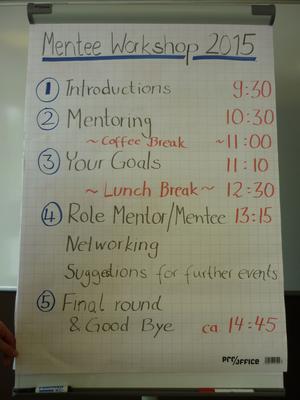 Mentee Workshop 2015
1 Introductions 9:30
2 Mentoring 10:30
~ Coffee Break ~11:00
3 Your Goals 11:10
~ Lunch Break ~ 12:30
4 Role Mentor/Mentee 13:15
Networking
Suggestions for further events
5 Final round
& Good Bye ca. 14:45
PRO/OFFICE